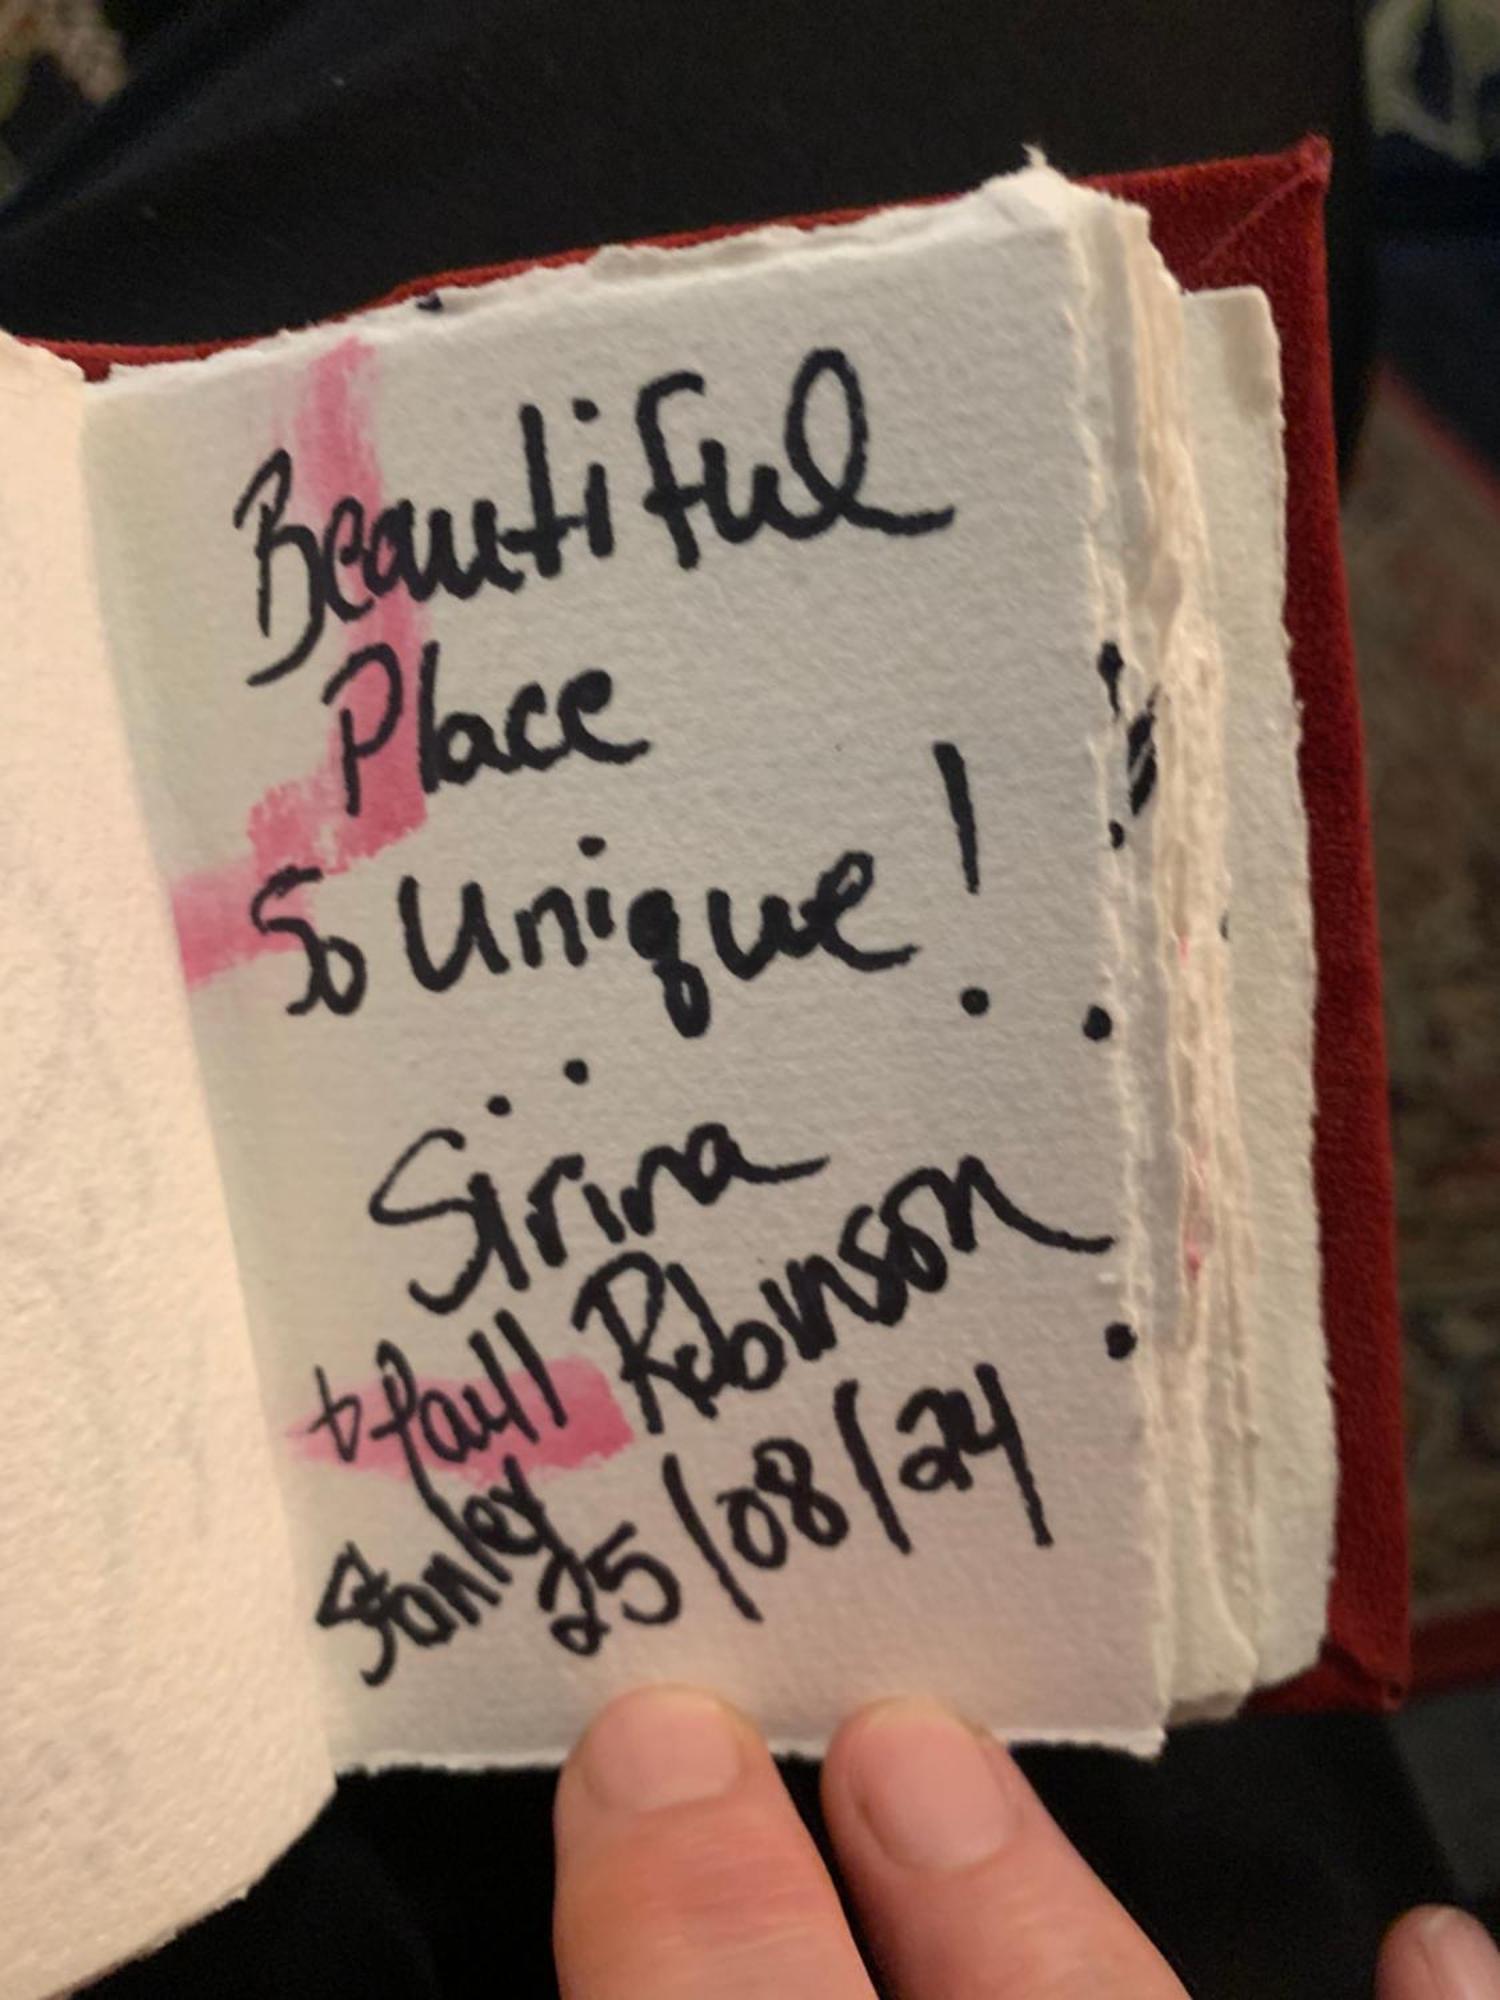 Beautiful
Place
So Unique!
Sirina
Robinson
& Paull
Stanley
25/08/24